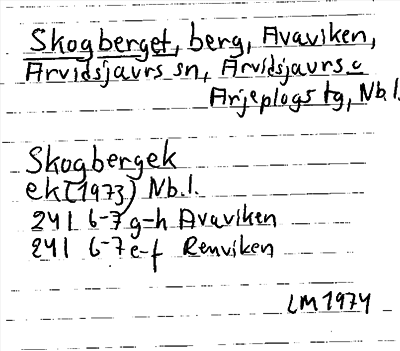 Skogberget, berg, Avaviken,
Arvidsjaurs sn, Arvidsjaurs o
Arjeplogs tg, Nb.l.
Skogbergek
ek (1973) Nb.l.
24I 6-7g-h Avaviken
24I 6-7e-f Renviken
LM 1974